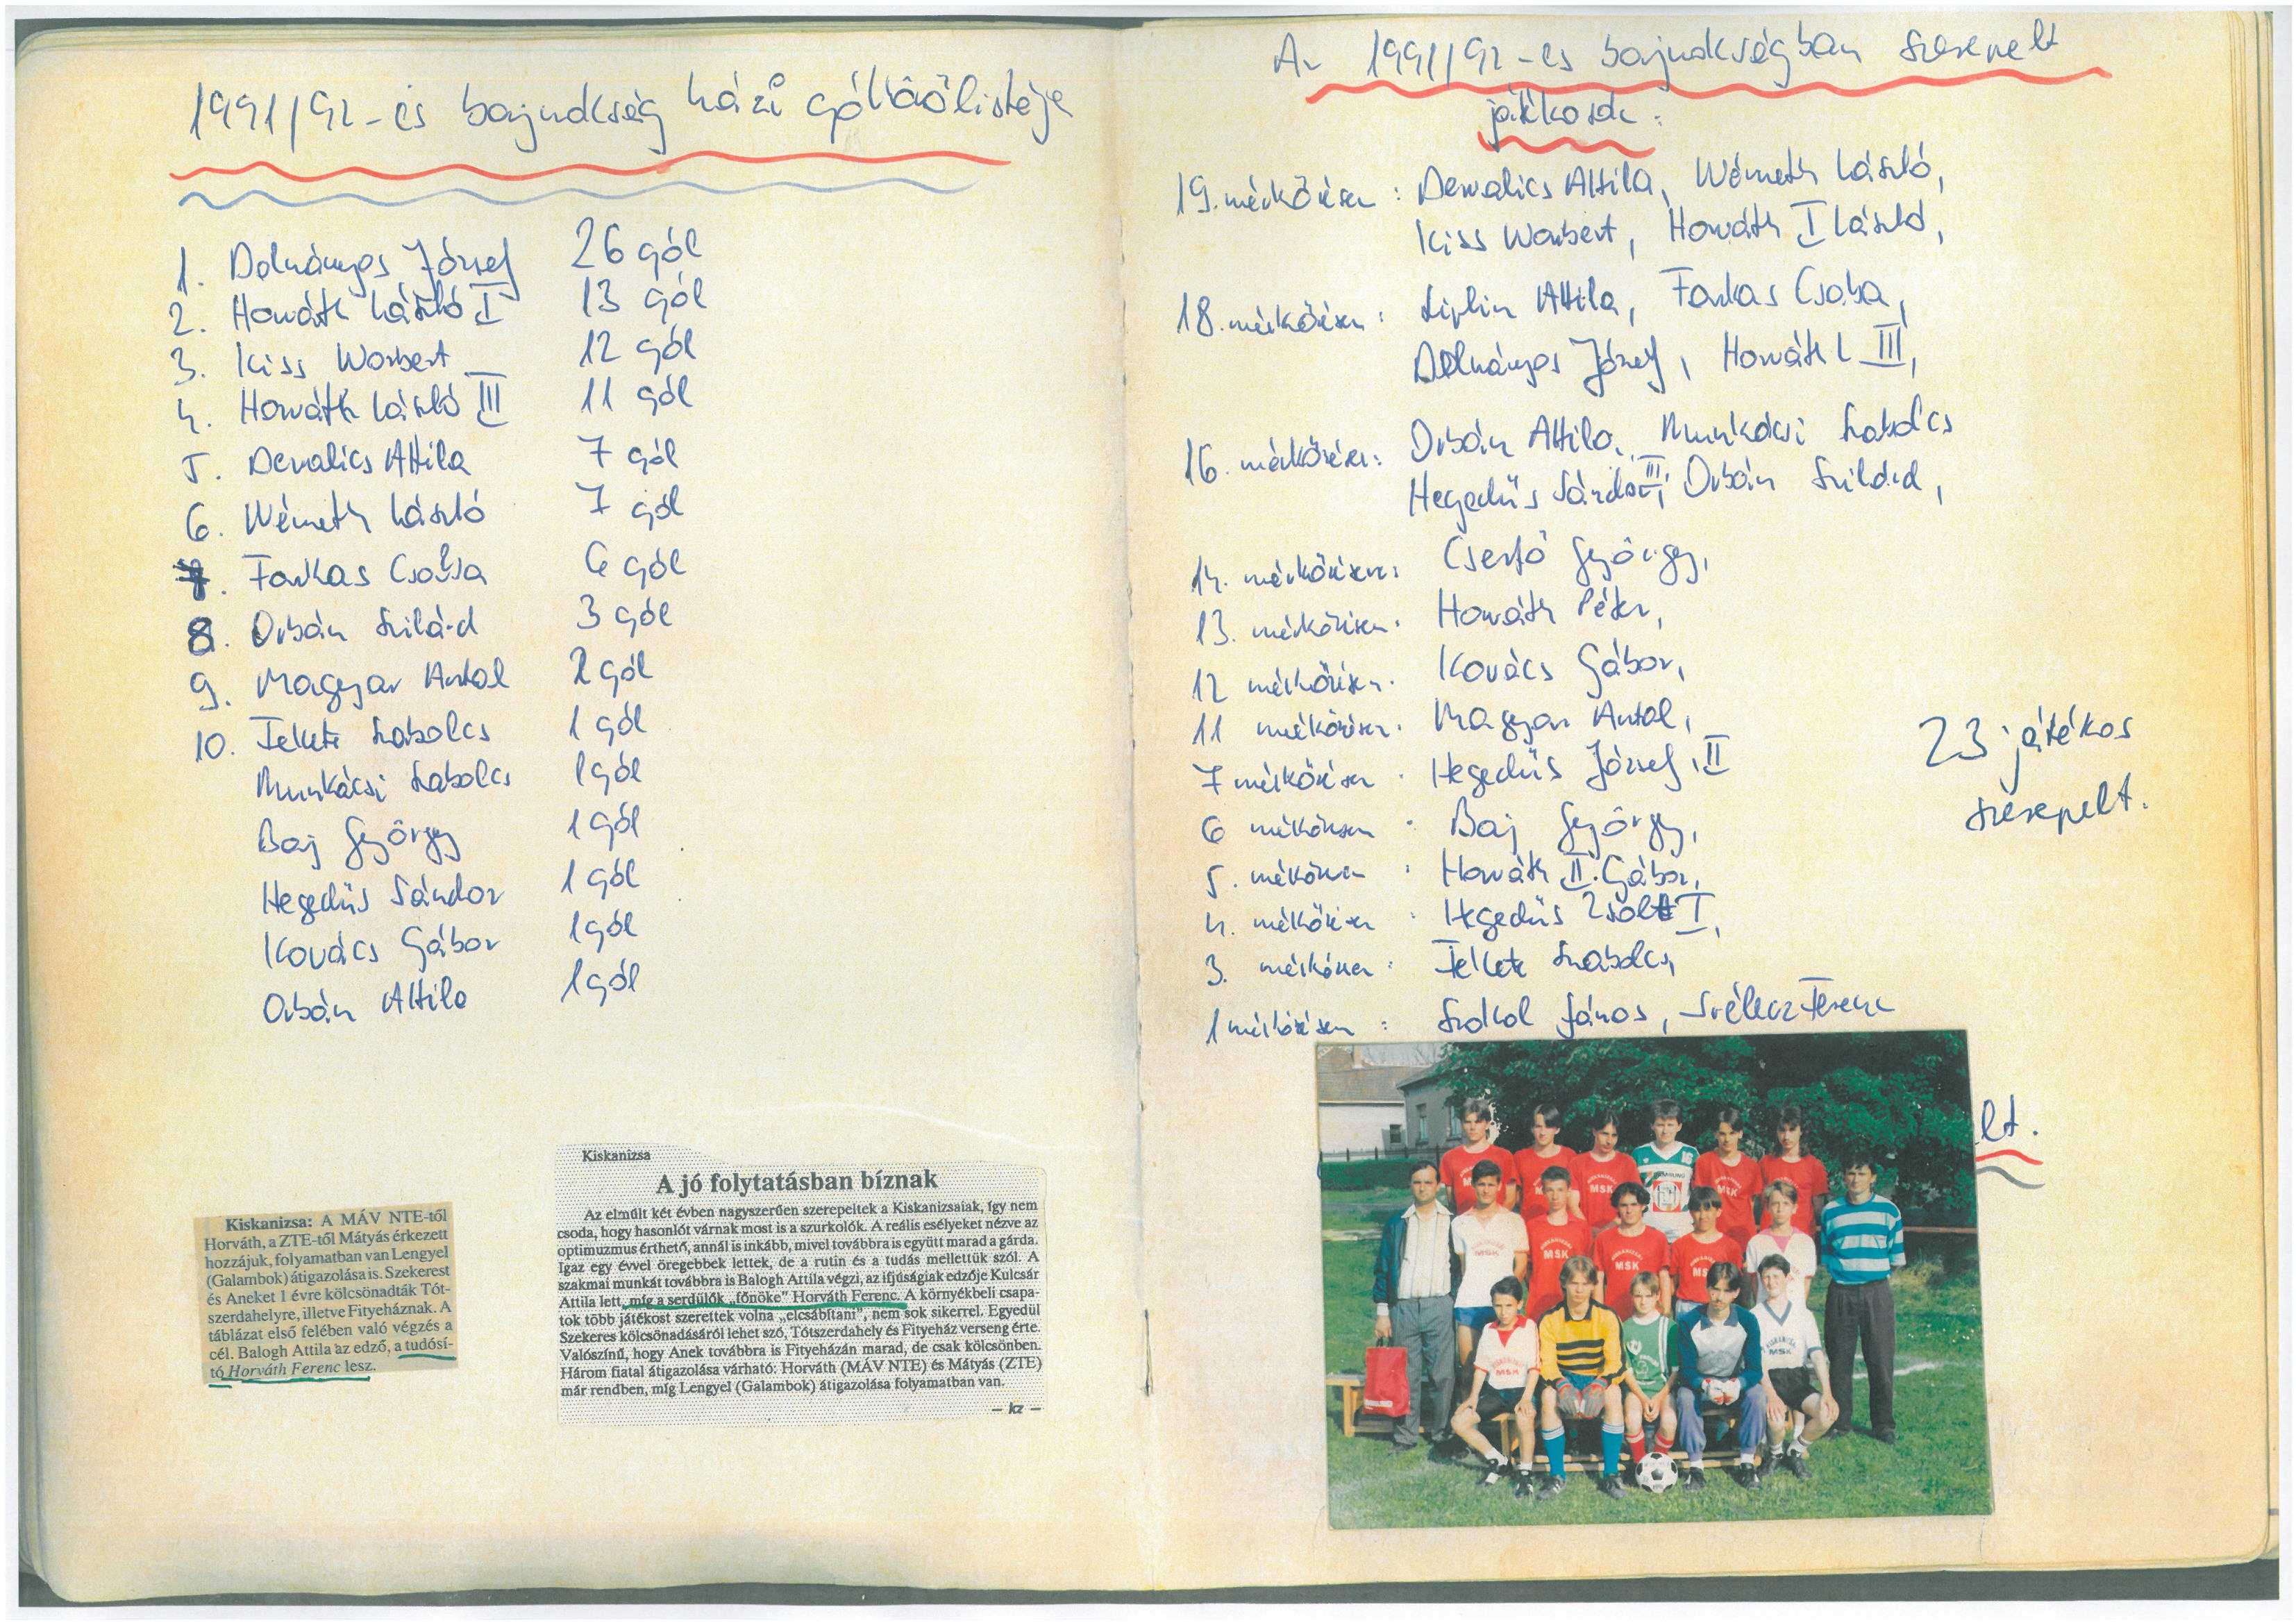 1991/92-es bajnokság házi góllövőlistája
1. Dolmányos József 26 gól
2. Horváth László I 13 gól
3. Kiss Norbert 12 gól
4. Horváth László III 11 gól
5. Dervalics Attila 7 gól
6. Németh László 7 gól
7. Farkas Csaba 6 gól
8. Orbán Szilárd 3 gól
9. Magyar Antal 2 gól
10. Fekete Szabolcs 1 gól
Munkácsi Szabolcs 1 gól
Baj György 1 gól
Hegedüs Sándor 1 gól
Kovács Gábor 1 gól
Orbán Attila 1 gól
Kiskanizsa: A MÁV NTE-től
Horváth, a ZTE-től Mátyás érkezett
hozzájuk, folyamatban van Lengyel
(Galambok) átigazolása is. Szekerest
és Aneket 1 évre kölcsönadták Tót-
szerdahelyre, illetve Fityeháznak. A
táblázat első felében való végzés a
cél. Balogh Attila az edző, a tudósí-
tó Horváth Ferenc lesz.
Kiskanizsa
A jó folytatásban bíznak
Az elmúlt két évben nagyszerűen szerepeltek a Kiskanizsaiak, így nem
csoda, hogy hasonlót várnak most is a szurkolók. A reális esélyeket nézve az
optimuzmus érthető, annál is inkább, mivel továbbra is együtt marad a gárda.
Igaz egy évvel öregebbek lettek, de a rutin és a tudás mellettük szól. A
szakmai munkát továbbra is Balogh Attila végzi, az ifjúságiak edzője Kulcsár
Attila lett, míg a serdülők „főnöke” Horváth Ferenc. A környékbeli csapa-
tok több játékost szerettek volna „elcsábítani”, nem sok sikerrel. Egyedül
Szekeres kölcsönadásáról lehet szó, Tótszerdahely és Fityeház verseng érte.
Valószínű, hogy Anek továbbra is Fityeházán marad, de csak kölcsönben.
Három fiatal átigazolása várható: Horváth (MÁV NTE) és Mátyás (ZTE)
már rendben, míg Lengyel (Galambok) átigazolása folyamatban van.
– kz –
Az 1991/92-es bajnokságban szerepelt
játékosok:
19. mérkőzésen: Dervalics Attila, Németh László,
Kiss Norbert, Horváth I László,
18. mérkőzésen: Liplin Attila, Farkas Csaba,
Dolmányos József, Horváth L III,
16. mérkőzésen: Orbán Attila, Munkácsi Szabolcs
Hegedüs Sándor III, Orbán Szilárd,
14. mérkőzésen: Cserfő György,
13. mérkőzésen: Horváth Péter,
12 mérkőzésen: Kovács Gábor,
11 mérkőzésen: Magyar Antal,
7 mérkőzésen: Hegedüs József, II
6 mérkőzésen: Baj György,
5. mérkőzésen: Horváth II. Gábor,
4. mérkőzésen: Hegedüs Zsolt I,
3. mérkőzésen: Fekete Szabolcs,
1 mérkőzésen: Szokol János, Ferenc
23 játékos
szerepelt.
lt.
MSK
MSK
MSK
MSK
MSK
MSK